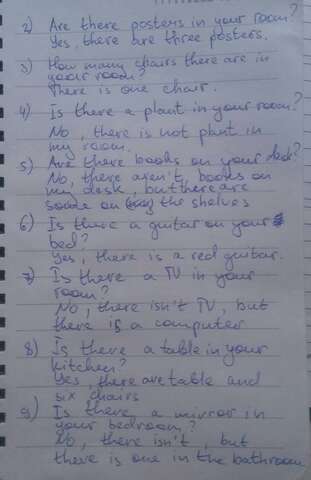 2) Are there posters in your room?
Yes, there are three posters.
3) How many chairs there are in
your room?
There is one chair.
4) Is there a plant in your room?
No, there is not plant in
my room.
5) Are there books on your desk?
No, there aren't, books on
my desk, but there are
some on the shelves
6) Is there a guitar on your
bed?
Yes, there is a red guitar.
7) Is there a TV in your
room?
No, there isn't TV, but
there is a computer
8) Is there a table in your
kitchen?
Yes, there are table and
six chairs
9) Is there a mirror in
your bedroom?
No, there isn't, but
there is one in the bathroom